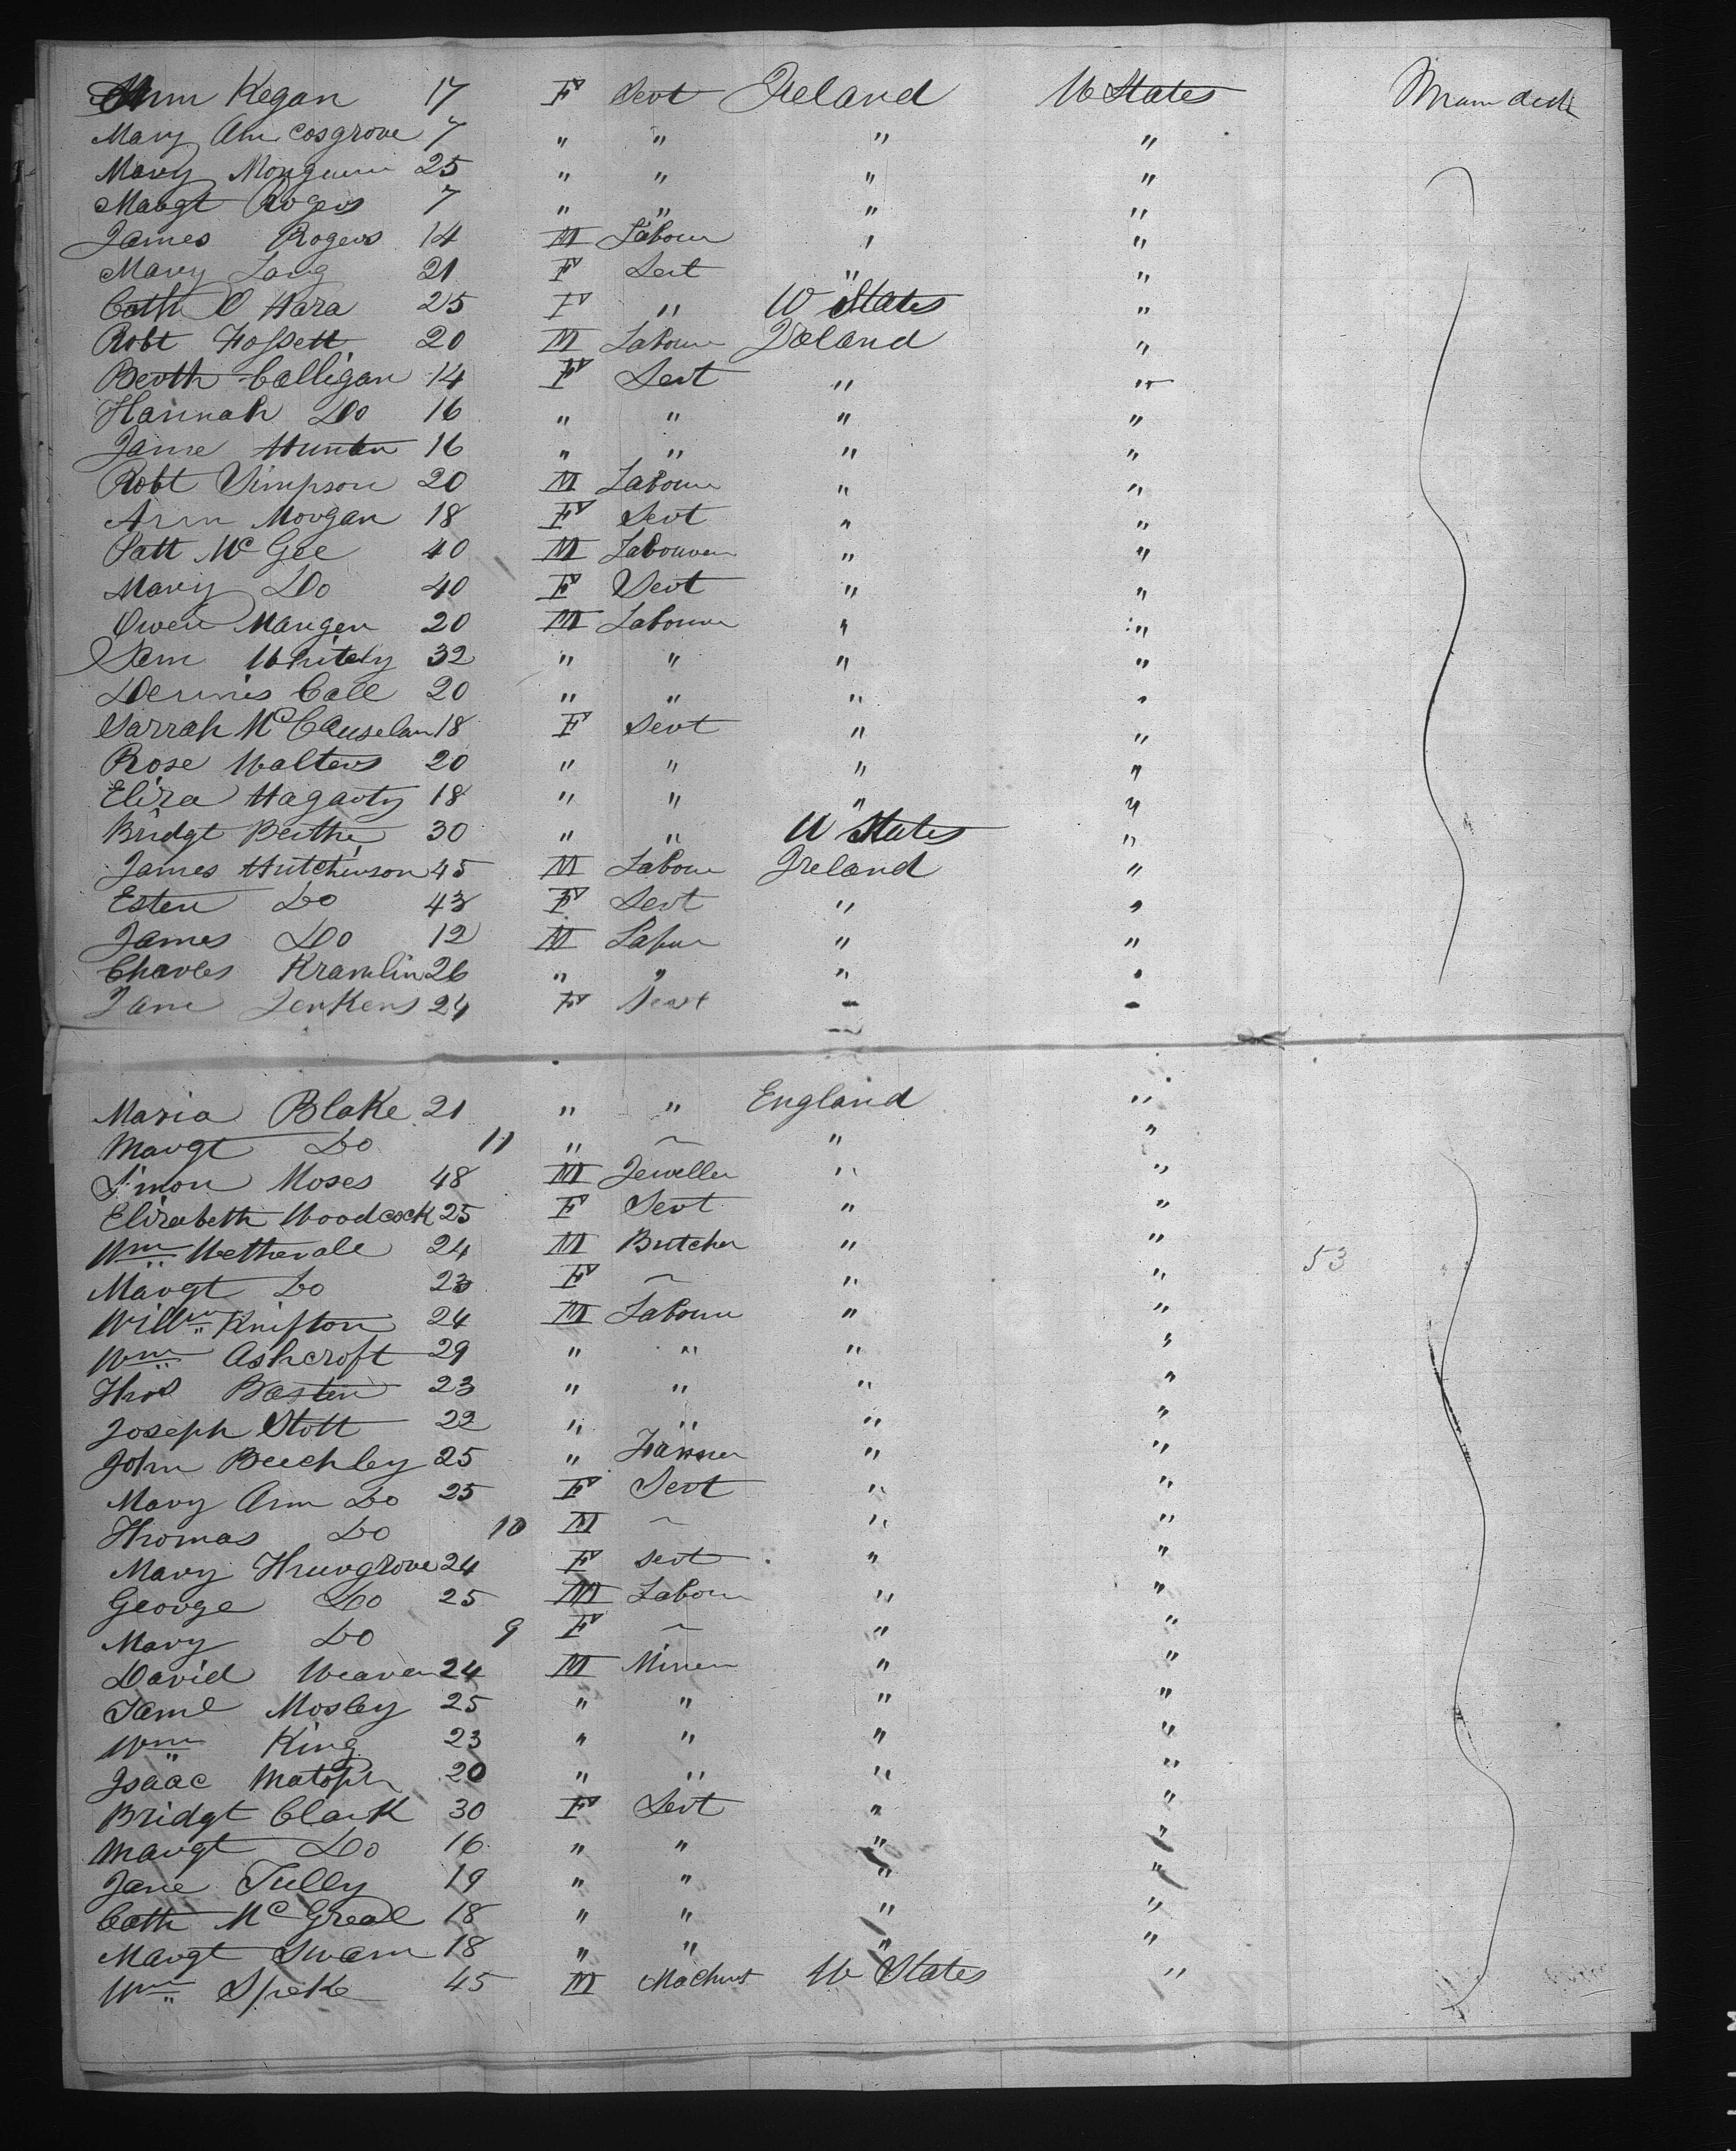 Ann Kegan 17 F Servt Ireland U States Main deck
Mary Ann Cosgrove 7 " " " "
Mary 25 " " " "
Margt Rogers 7 " " " "
James Rogers 14 M Labour " "
Mary Lang 21 F Servt " "
Cath O Hara 25 F " U States "
Robt Fossett 20 M Labour Ireland "
Calligan 14 F Servt " "
Hannah Do 16 " " " "
Jane Hunter 16 " " " "
Robt Simpson 20 M Labour " "
Ann Morgan 18 F Servt " "
Patt McGee 40 M Labourer " "
Mary Do 40 F Servt " "
Owen Mangen 20 M Labour " "
Sam Whitely 32 " " " "
Dennis Call 20 " " " "
Sarrah McCauselan 18 F Servt " "
Rose Walters 20 " " " "
Eliza Hagarty 18 " " " "
Bridgt 30 " " U States "
James Hutchinson 45 M Labour Ireland "
Ester Do 43 F Servt " "
James Do 12 M Labour " "
Charles Kramlin 26 " " " "
Jane Jenkens 24 F Servt " "
Maria Blake 21 " " England "
Margt Do 11 " ~ " "
Simon Moses 48 M Jeweller " "
Elizabeth Woodcock 25 F Servt " "
Wm Wetherall 24 M Butcher " "
Margt Do 23 F ~ " " 53
Willm Knifton 24 M Labour " "
Wm Ashcroft 29 " " " "
Thos Basten 23 " " " "
Joseph Stott 22 " " " "
John Beechley 25 " Farmer " "
Mary Ann Do 25 F Servt " "
Thomas Do 10 M ~ " "
Mary 24 F Servt " "
George Do 25 M Labour " "
Mary Do 9 F ~ " "
David Weaver 24 M Miner " "
Saml Mosley 25 " " " "
Wm King 23 " " " "
Isaac 20 " " " "
Bridgt Clark 30 F Servt " "
Margt Do 16 " " " "
Jane Tully 19 " " " "
Cath McGreal 18 " " " "
Margt Swan 18 " " " "
Wm Speke 45 M Machnst U States "